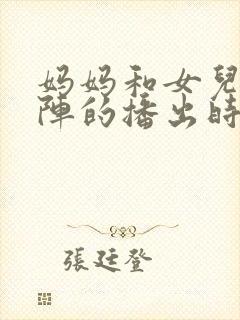 妈妈和女兒
陣的播出時
張廷登